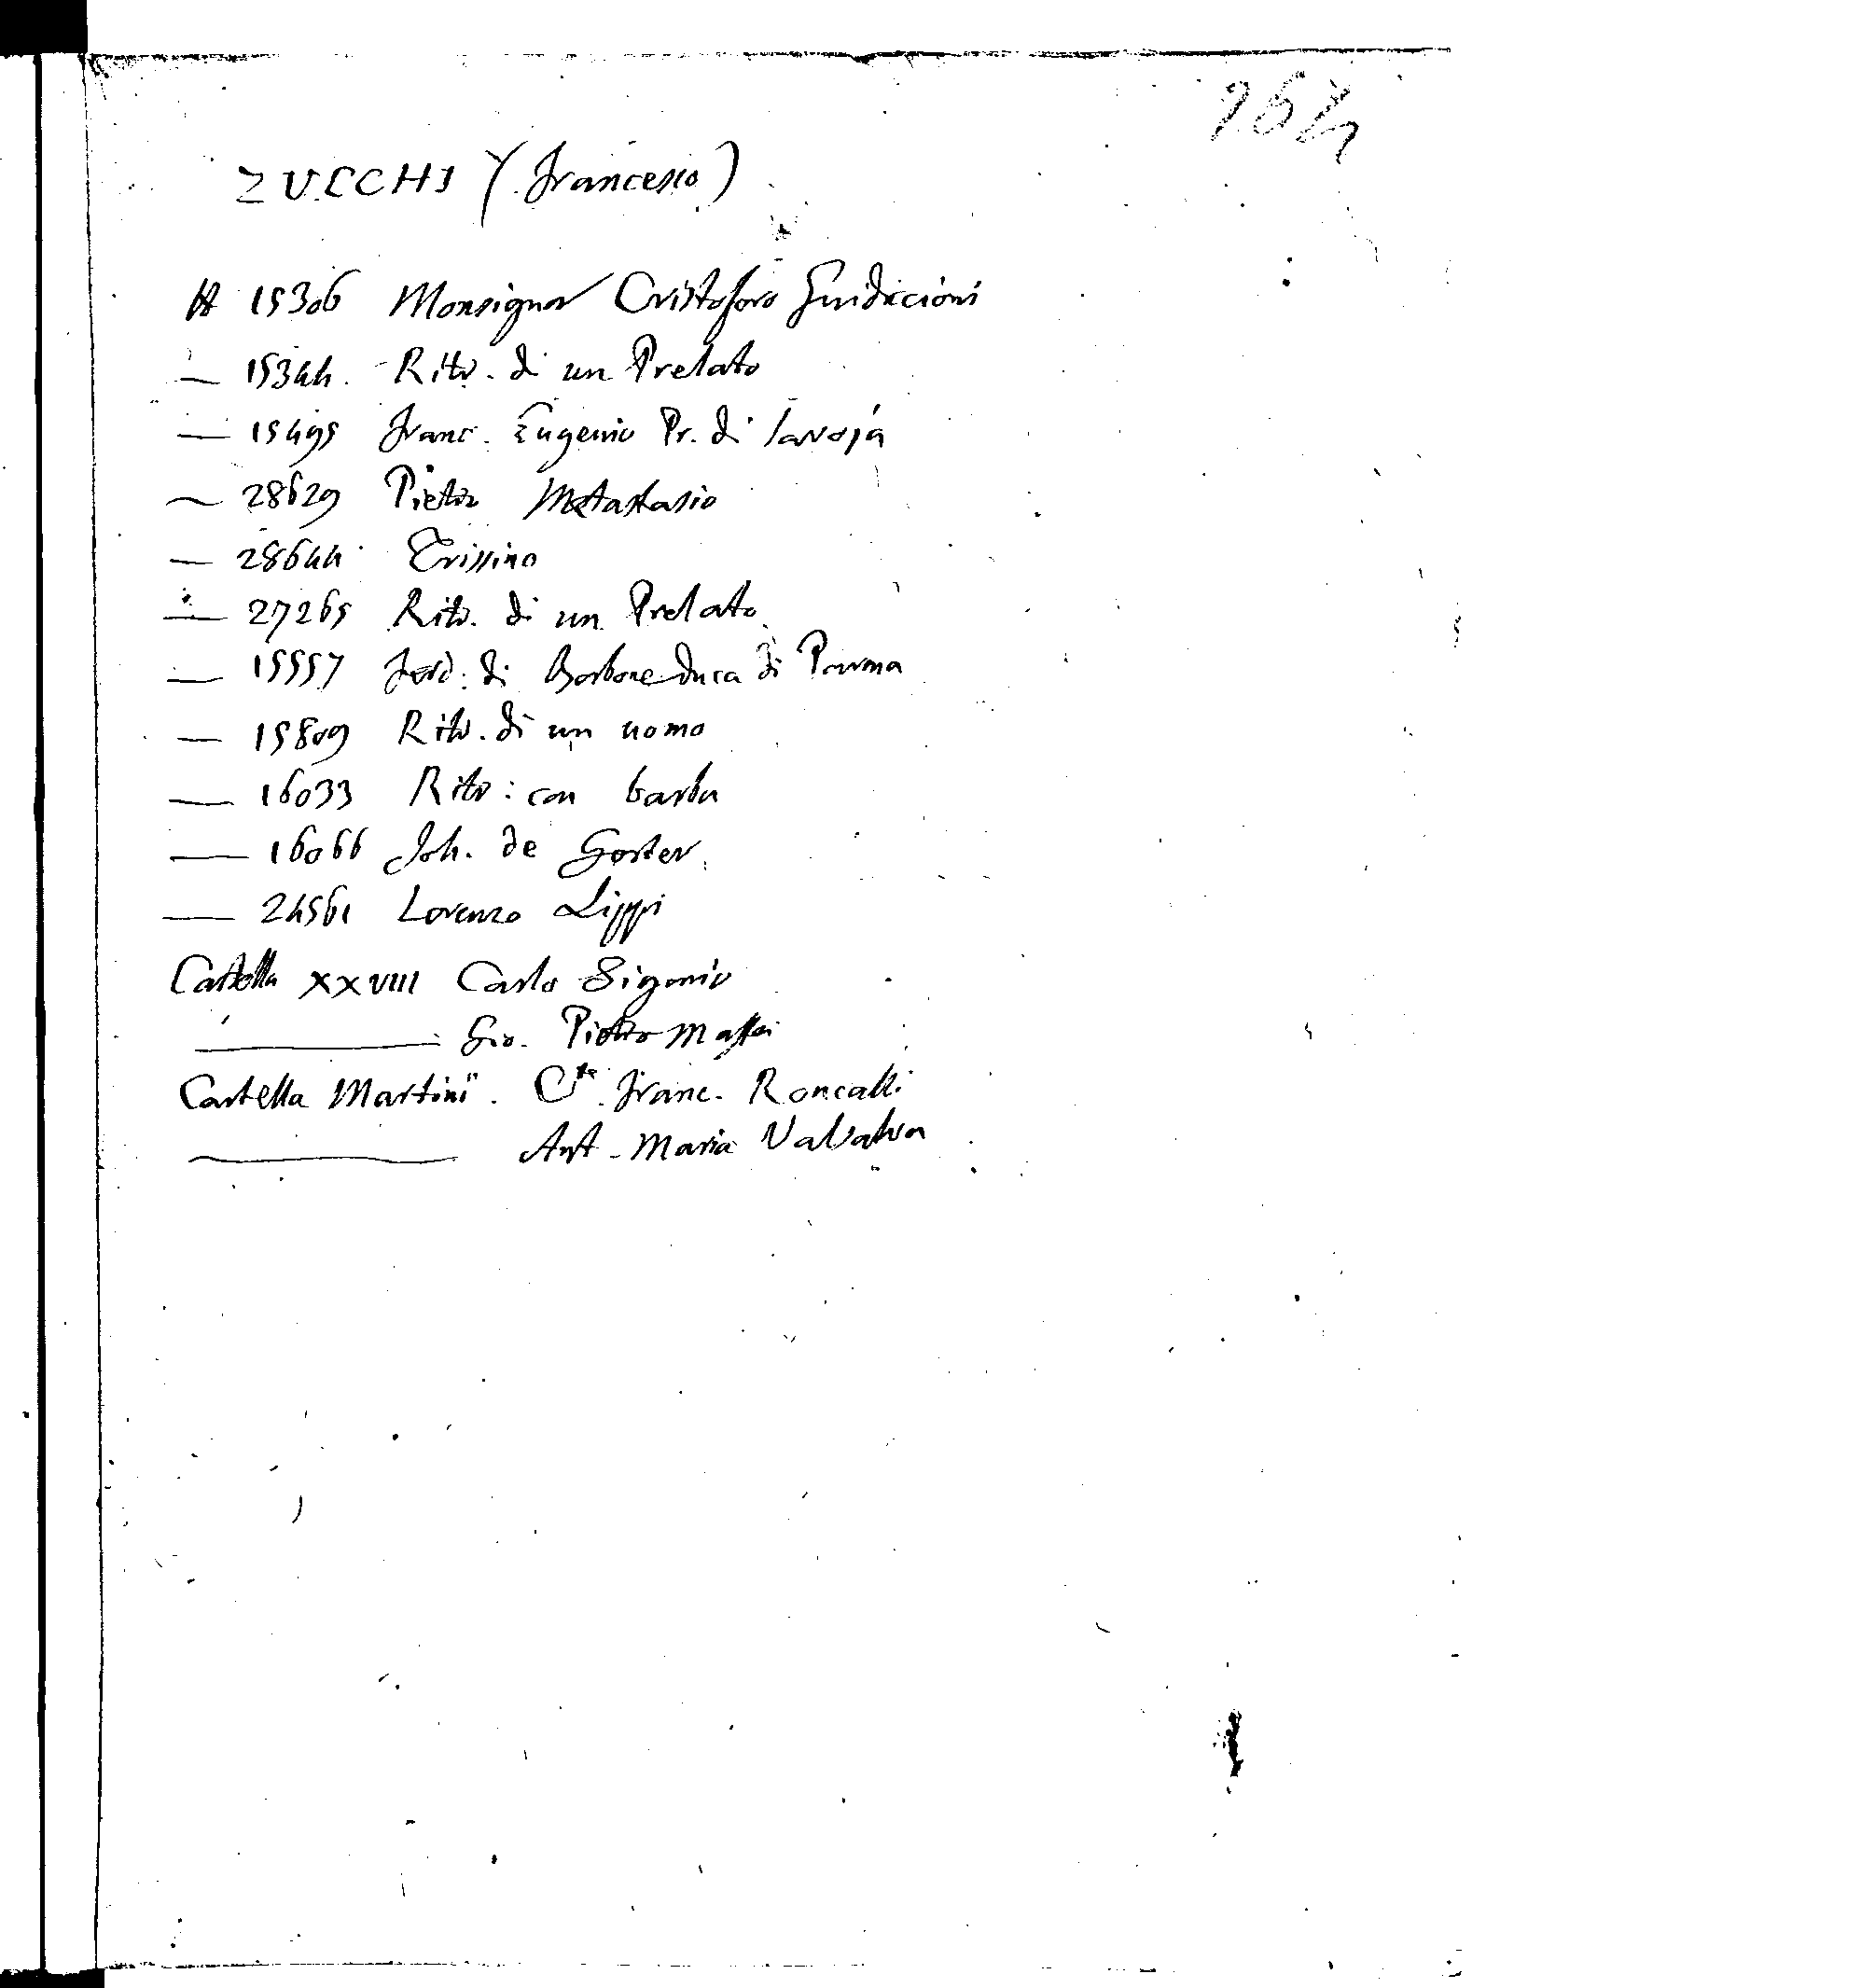 1674
ZUCCHI (Francesco)
A 15306 Monsignor Cristoforo Guidiccioni
— 15344. Ritr. di un Prelato
— 15495 Franc. Eugenio Pr. di Savoja
— 28629 Pietro Metastasio
— 28644 Trissino
— 27265 Ritr. di un Prelato
— 15557 Ferd. di Borbone Duca di Parma
— 15809 Ritr. di un uomo
— 16033 Ritr: con barba
— 16066 Joh. de Gorter
— 24561 Lorenzo Lippi
Cartella XXVIII Carlo Sigonio
— Gio. Pietro Maffei
Cartella Martini. Cte. Franc. Roncalli
— Ant. Maria